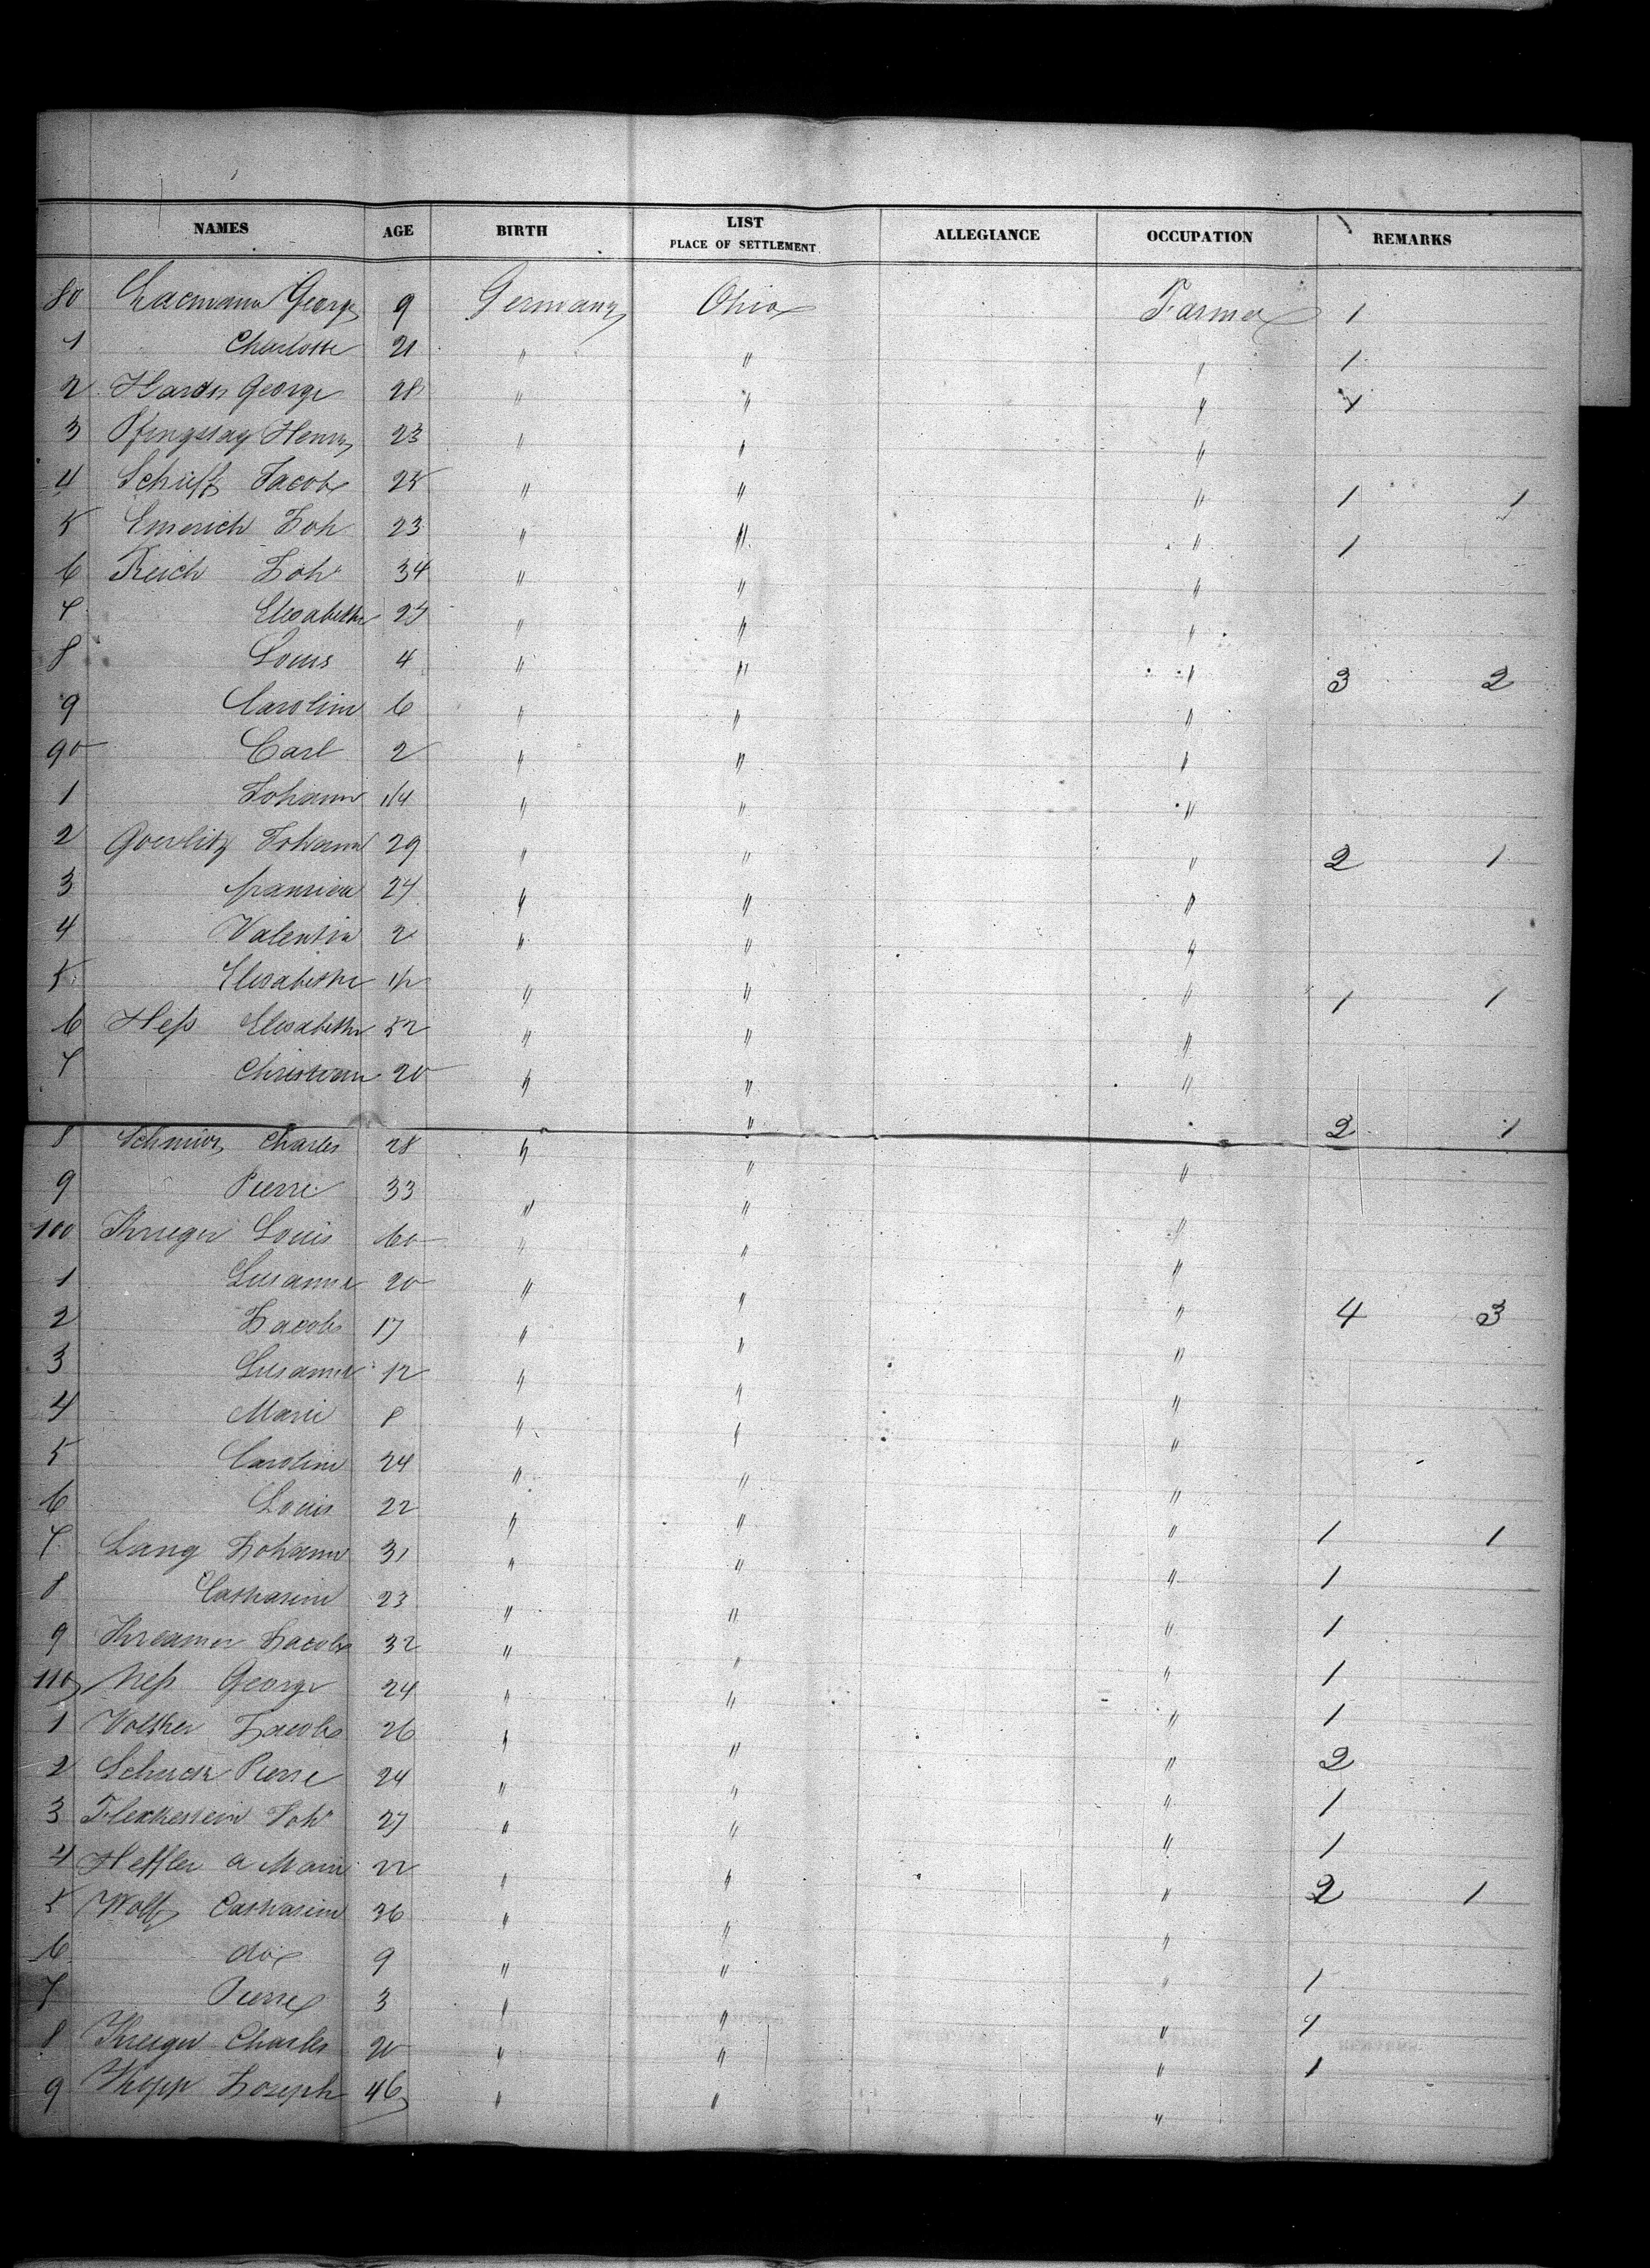 NAMES AGE BIRTH LIST PLACE OF SETTLEMENT ALLEGIANCE OCCUPATION REMARKS
80 George 9 Germany Ohio Farmer 1
1 Charlotte 21 " " " 1
2 George 28 " " " 1
3 Pfingstag Henry 23 " " "
4 Jacob 25 " " " 1 1
5 Emerich Joh 23 " " " 1
6 Reich Joh 34 " " "
7 Elisabethe 27 " " "
8 Louis 4 " " " 3 2
9 Caroline 6 " " "
90 Carl 2 " " "
1 Johann " " "
2 Goerlitz Johann 29 " " " 2 1
3 " " "
4 Valentin 2 " " "
5 Elisabethe " " " 1 1
6 Heß Elisabethe 52 " " "
7 Christian 20 " " "
" " 2 1
8 Charles 28 " " "
9 Pierre 33 " " "
100 Krueger Louis 60 " " "
1 Susanna 20 " " " 4 3
2 Jacob 17 " " "
3 Susanna 12 " " "
4 Marie 8 " " "
5 Caroline 24 " " "
6 Louis 22 " " " 1 1
7 Lang Johann 31 " " " 1
8 Catharine 23 " " " 1
9 Kreamer Jacob 32 " " " 1
110 George 24 " " " 1
1 Jacob 26 " " " 2
2 Pierre 24 " " " 1
3 Joh 27 " " " 1
4 Heffler a Marie 22 " " " 2 1
5 Wolff Catharine 36 " " "
6 do 9 " " " 1
7 Pierre 3 " " " 1
8 Krieger Charles 20 " " " 1
9 Kopp Joseph 46 " " "